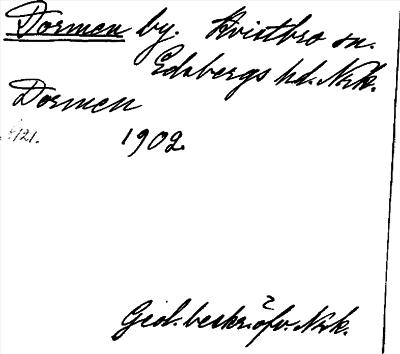 Dormen by. Kvistbro sn.
Edsbergs hd. Nrk.
Dormen
1902.
Geol. beskr. öfv. Nrk.